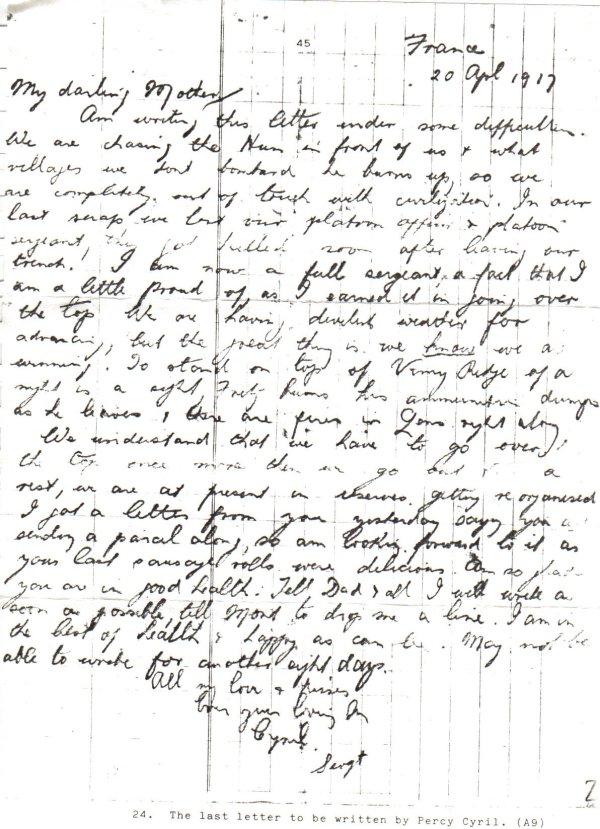 45
France
20 Apl 1917
My darling Mother
Am writing this letter under some difficulties.
We are chasing the Hun in front of us & what
villages we dont bombard he burns up, so we
are completely out of touch with civilization. In our
last scrap we lost our platoon officer & platoon
sergeant, they got killed soon after leaving our
trench. I am now a full sergeant, a fact that I
am a little proud of, as I earned it in going over
the top. We are having devilish weather for
advancing, but the great thing is we know we a
winning. To stand on top of Vimy Ridge of a
night is a sight Fritz burns his ammunition dumps
as he leaves, there are fires in Lens right along
We understand that we have to go over
the top once more then we go out a
rest, we are at present in reserves getting reorganised
I got a letter from you yesterday saying you a
sending a parcel along, so am looking forward to it as
your last sausage rolls were delicious so
you are in good health. Tell Dad & all I will write a
soon as possible, tell Mont to drop me a line. I am in
the best of health & happy as can be. May not be
able to write for another eight days.
All my love & kisses
from your loving
Cyril.
Sergt
24. The last letter to be written by Percy Cyril. (A9)